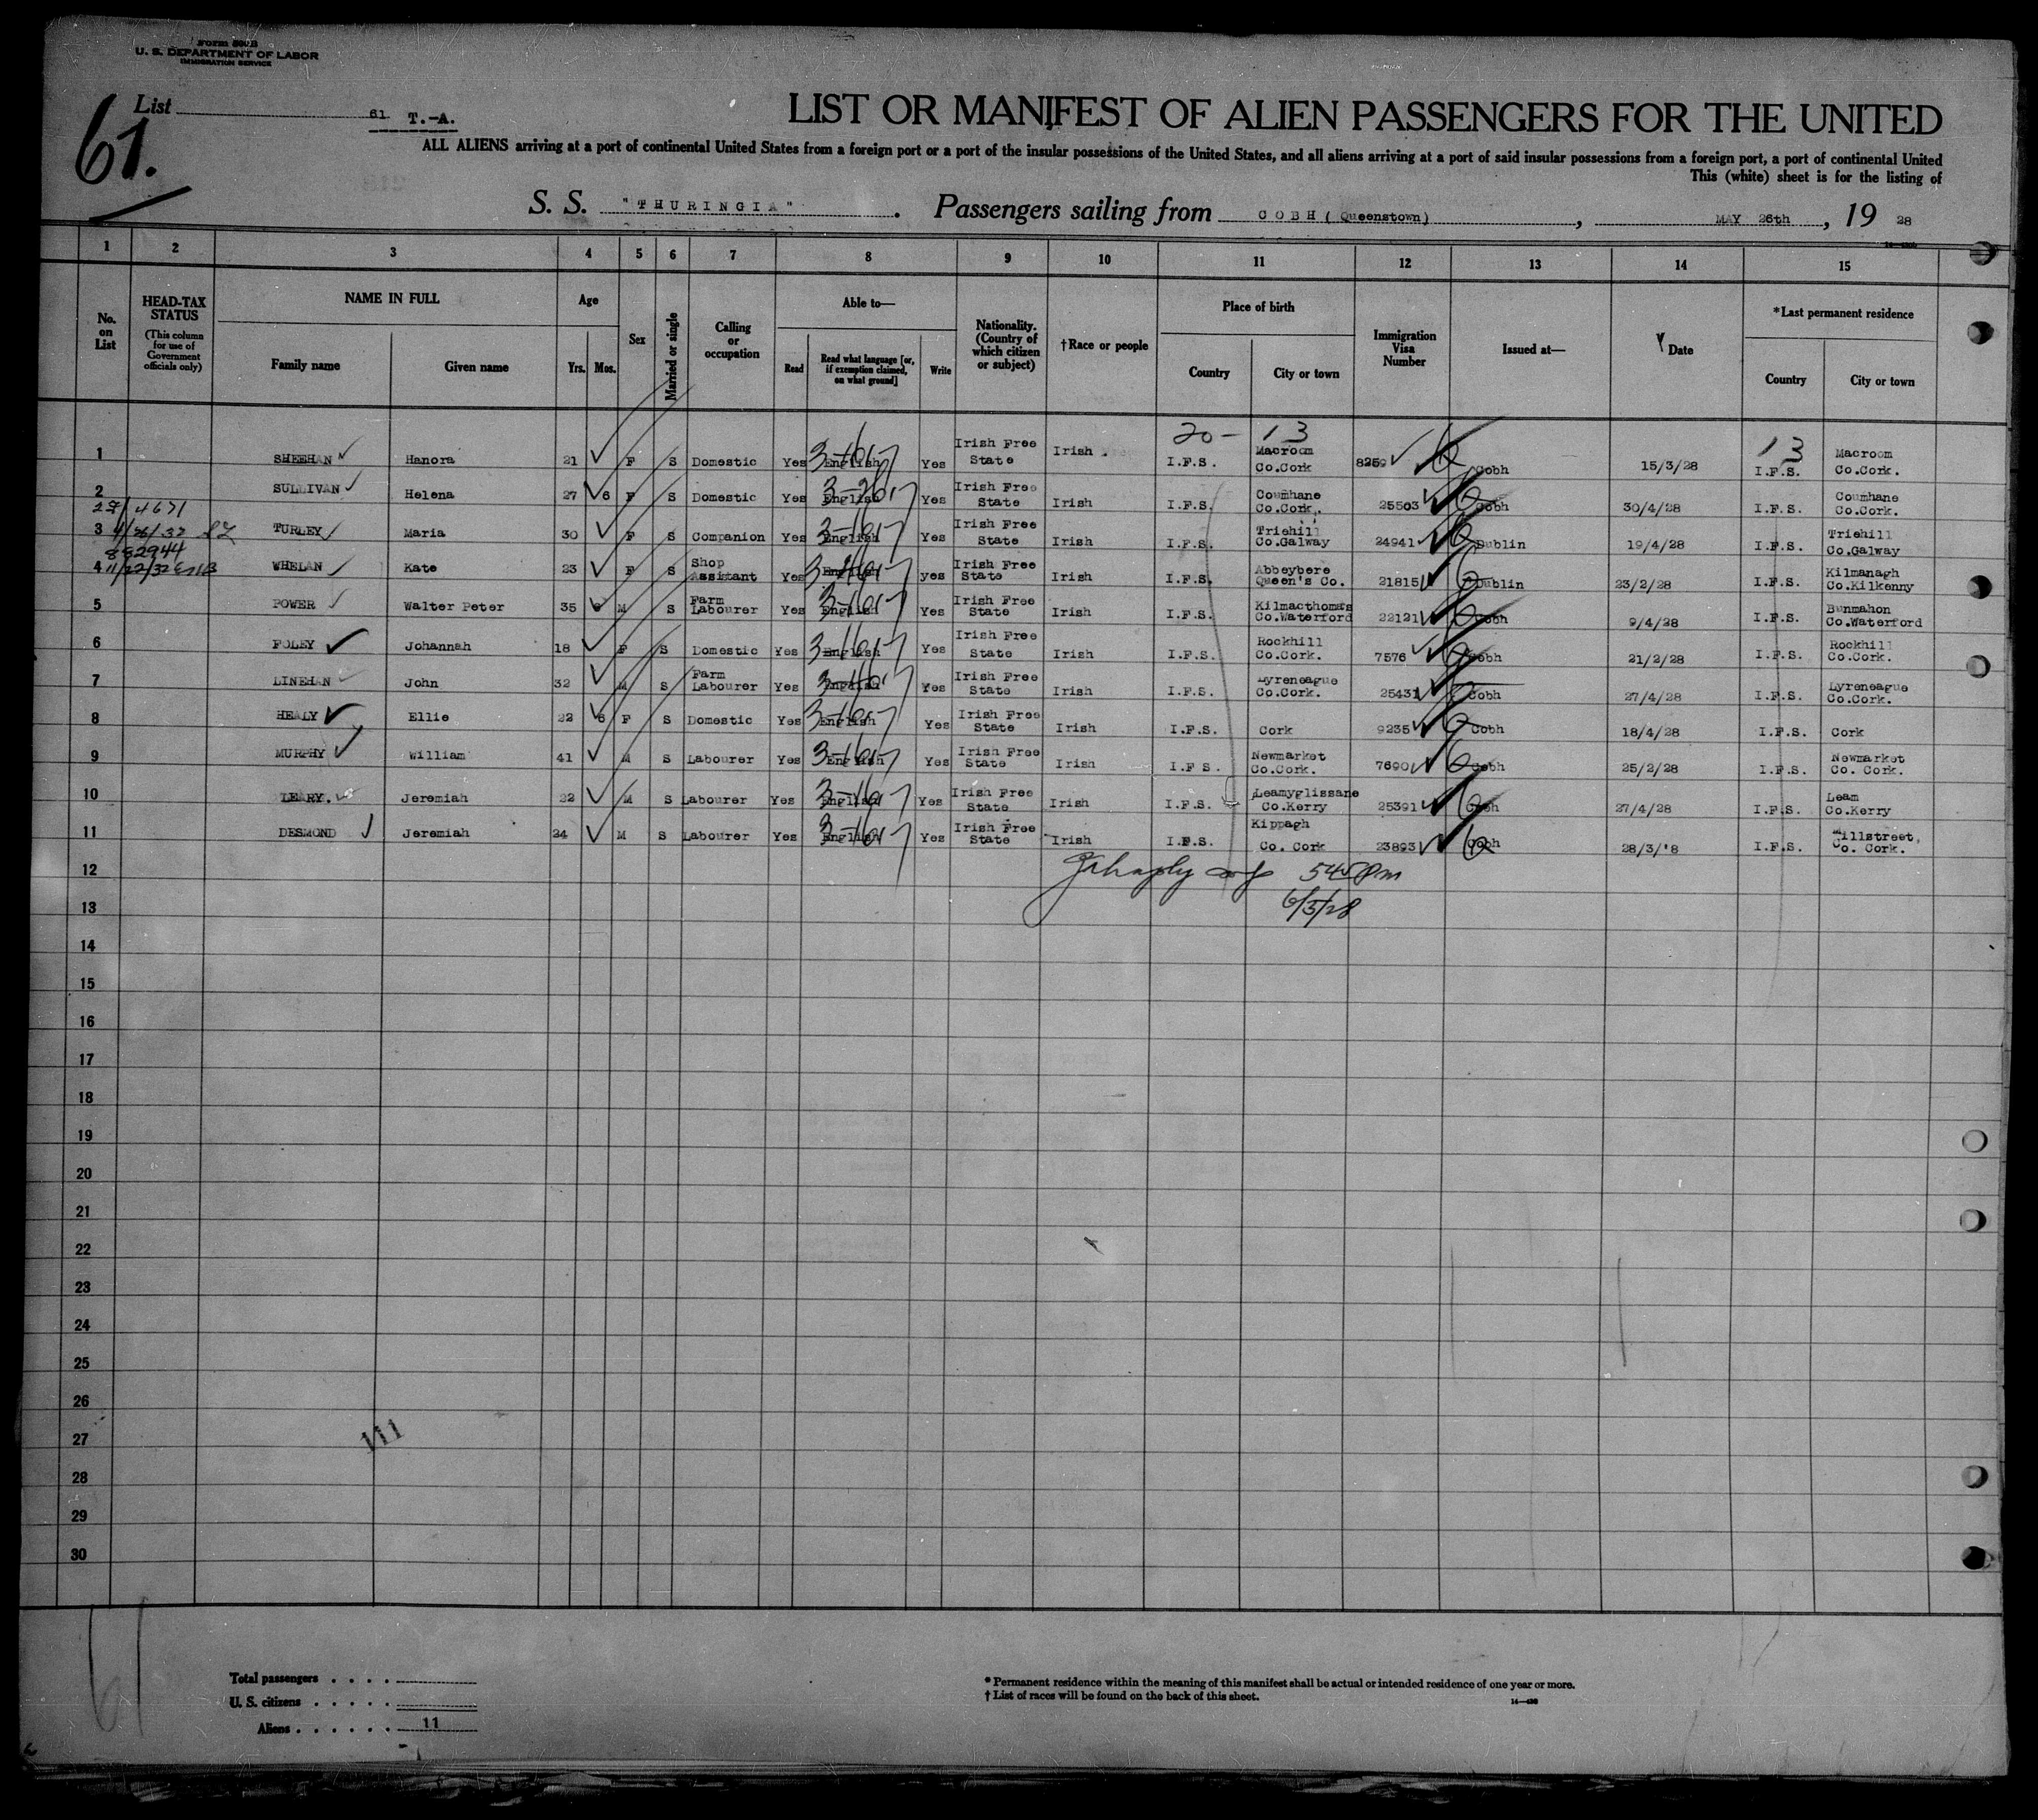 Form 500B
U. S. DEPARTMENT OF LABOR
IMMIGRATION SERVICE
List 61 T.-A.
61.
LIST OR MANIFEST OF ALIEN PASSENGERS FOR THE UNITED
ALL ALIENS arriving at a port of continental United States from a foreign port or a port of the insular possessions of the United States, and all aliens arriving at a port of said insular possessions from a foreign port, a port of continental United
This (white) sheet is for the listing of
S. S. "THURINGIA". Passengers sailing from COBH (Queenstown), MAY 26th, 19 28
1 2 3 4 5 6 7 8 9 10 11 12 13 14 15
No. on List
HEAD-TAX STATUS
(This column for use of Government officials only)
NAME IN FULL
Family name Given name
Age
Yrs. Mos.
Sex
Married or single
Calling or occupation
Able to—
Read
Read what language [or, if exemption claimed, on what ground]
Write
Nationality. (Country of which citizen or subject)
†Race or people
Place of birth
Country City or town
Immigration Visa Number
Issued at—
Date
*Last permanent residence
Country City or town
20- 13 13
1 SHEEHAN Hanora 21 F S Domestic Yes English Yes Irish Free State Irish I.F.S. Macroom Co.Cork 8259 Cobh 15/3/28 I.F.S. Macroom Co.Cork.
2 SULLIVAN Helena 27 6 F S Domestic Yes English Yes Irish Free State Irish I.F.S. Coumhane Co.Cork. 25503 Cobh 30/4/28 I.F.S. Coumhane Co.Cork.
4671
3 TURLEY Maria 30 F S Companion Yes English Yes Irish Free State Irish I.F.S. Triehill Co.Galway 24941 Dublin 19/4/28 I.F.S. Triehill Co.Galway
882944
4 11/22/32 WHELAN Kate 23 F S Shop Assistant Yes English yes Irish Free State Irish I.F.S. Abbeybere Queen's Co. 21815 Dublin 23/2/28 I.F.S. Kilmanagh Co.Kilkenny
5 POWER Walter Peter 35 M S Farm Labourer Yes English Yes Irish Free State Irish I.F.S. Kilmacthomas Co.Waterford 22121 Cobh 9/4/28 I.F.S. Bunmahon Co.Waterford
6 FOLEY Johannah 18 F S Domestic Yes English Yes Irish Free State Irish I.F.S. Rockhill Co.Cork. 7576 Cobh 21/2/28 I.F.S. Rockhill Co.Cork.
7 LINEHAN John 32 M S Farm Labourer Yes English Yes Irish Free State Irish I.F.S. Lyreneague Co.Cork. 25431 Cobh 27/4/28 I.F.S. Lyreneague Co.Cork.
8 HEALY Ellie 22 6 F S Domestic Yes English Yes Irish Free State Irish I.F.S. Cork 9235 Cobh 18/4/28 I.F.S. Cork
9 MURPHY William 41 M S Labourer Yes English Yes Irish Free State Irish I.F S. Newmarket Co.Cork. 7690 Cobh 25/2/28 I.F.S. Newmarket Co. Cork.
10 LEARY. Jeremiah 22 M S Labourer Yes English Yes Irish Free State Irish I.F.S. Leamyglissane Co.Kerry 25391 Cobh 27/4/28 I.F.S. Leam Co.Kerry
11 DESMOND Jeremiah 24 M S Labourer Yes English Yes Irish Free State Irish I.F.S. Kippagh Co. Cork 23893 Cobh 28/3/'8 I.F.S. Millstreet, Co. Cork.
12 545 Pm
13 6/5/28
14
15
16
17
18
19
20
21
22
23
24
25
26
27
111
28
29
30
61
Total passengers . . . .
U. S. citizens . . . . .
Aliens . . . . . . 11
* Permanent residence within the meaning of this manifest shall be actual or intended residence of one year or more.
† List of races will be found on the back of this sheet.